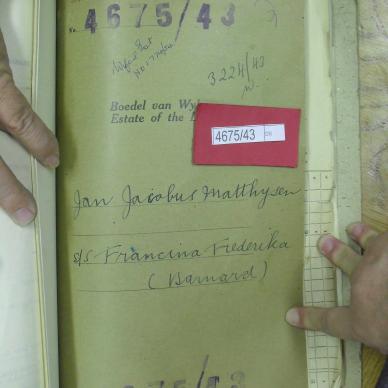 No. 4675/43
3224/43
Boedel van Wy
Estate of the L
4675/43
Jan Jacobus Matthysen
s/s Francina Frederika
(Barnard)
4675/43